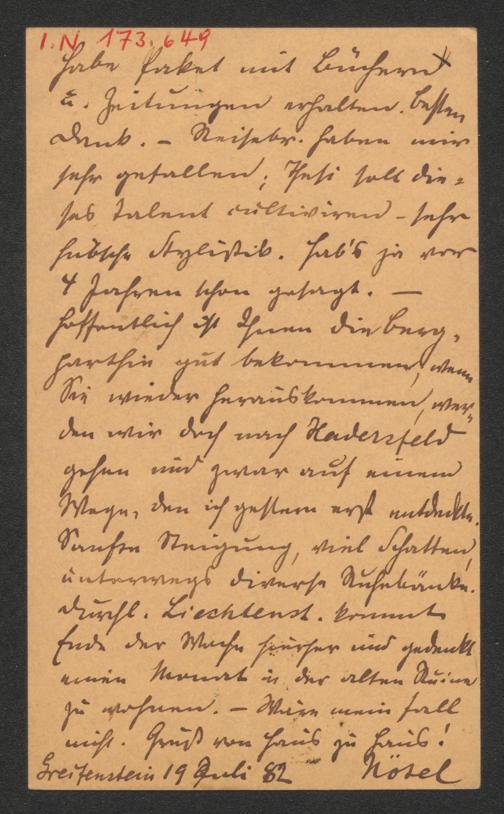 I.N. 173.649
Habe Paket mit Büchern
u. Zeitungen erhalten. Besten
Dank. – Reisebr. haben mir
sehr gefallen; Thesi soll die=
ses Talent cultiviren – sehr
hübsche Stylistik. Hab's ja vor
4 Jahren schon gesagt. —
Hoffentlich ist Ihnen die Berg=
parthie gut bekommen, wenn
Sie wieder herauskommen, wer=
den wir doch nach Hadersfeld
gehen und zwar auf einem
Wege, den ich gestern erst entdeckte.
Sanfte Steigung, viel Schatten,
unterwegs diverse Ruhebänke.
Durchl. Liechtenst. kommt
Ende der Woche hierher und gedenkt
einen Monat in der alten Ruine
zu wohnen. – Wäre mein Fall
nicht. Gruß von Haus zu Haus!
Greifenstein 19 Juli 82 Nötel